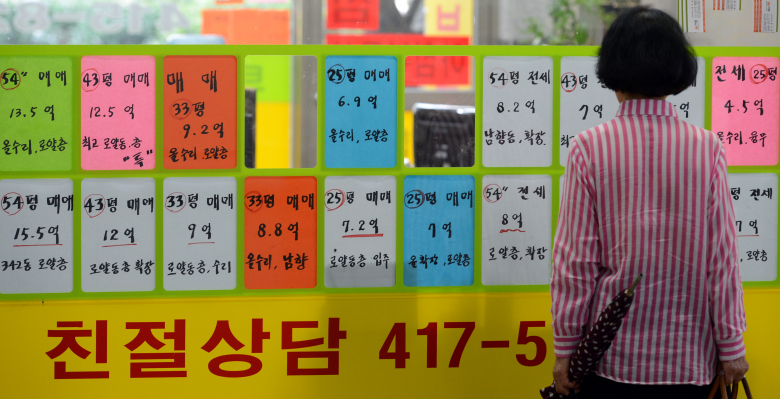 54" 매매
13.5억
올수리, 로얄층
43평 매매
12.5억
최고 로얄동.층
"특"
매매
33평
9.2억
올수리 로얄층
25평 매매
6.9억
올수리, 로얄층
54평 전세
8.2억
남향동, 확장
43
7
전세 25평
4.5억
올수리.
54평 매매
15.5억
342동 로얄층
43평 매매
12억
로얄동층 확장
33평 매매
9억
로얄층, 수리
33평 매매
8.8억
올수리, 남향
25평 매매
7.2억
로얄동층 입주
25평 매매
7억
올확장, 로얄층
54" 전세
8억
로얄층, 확장
평 매매
7억
로얄층
친절상담 417-5